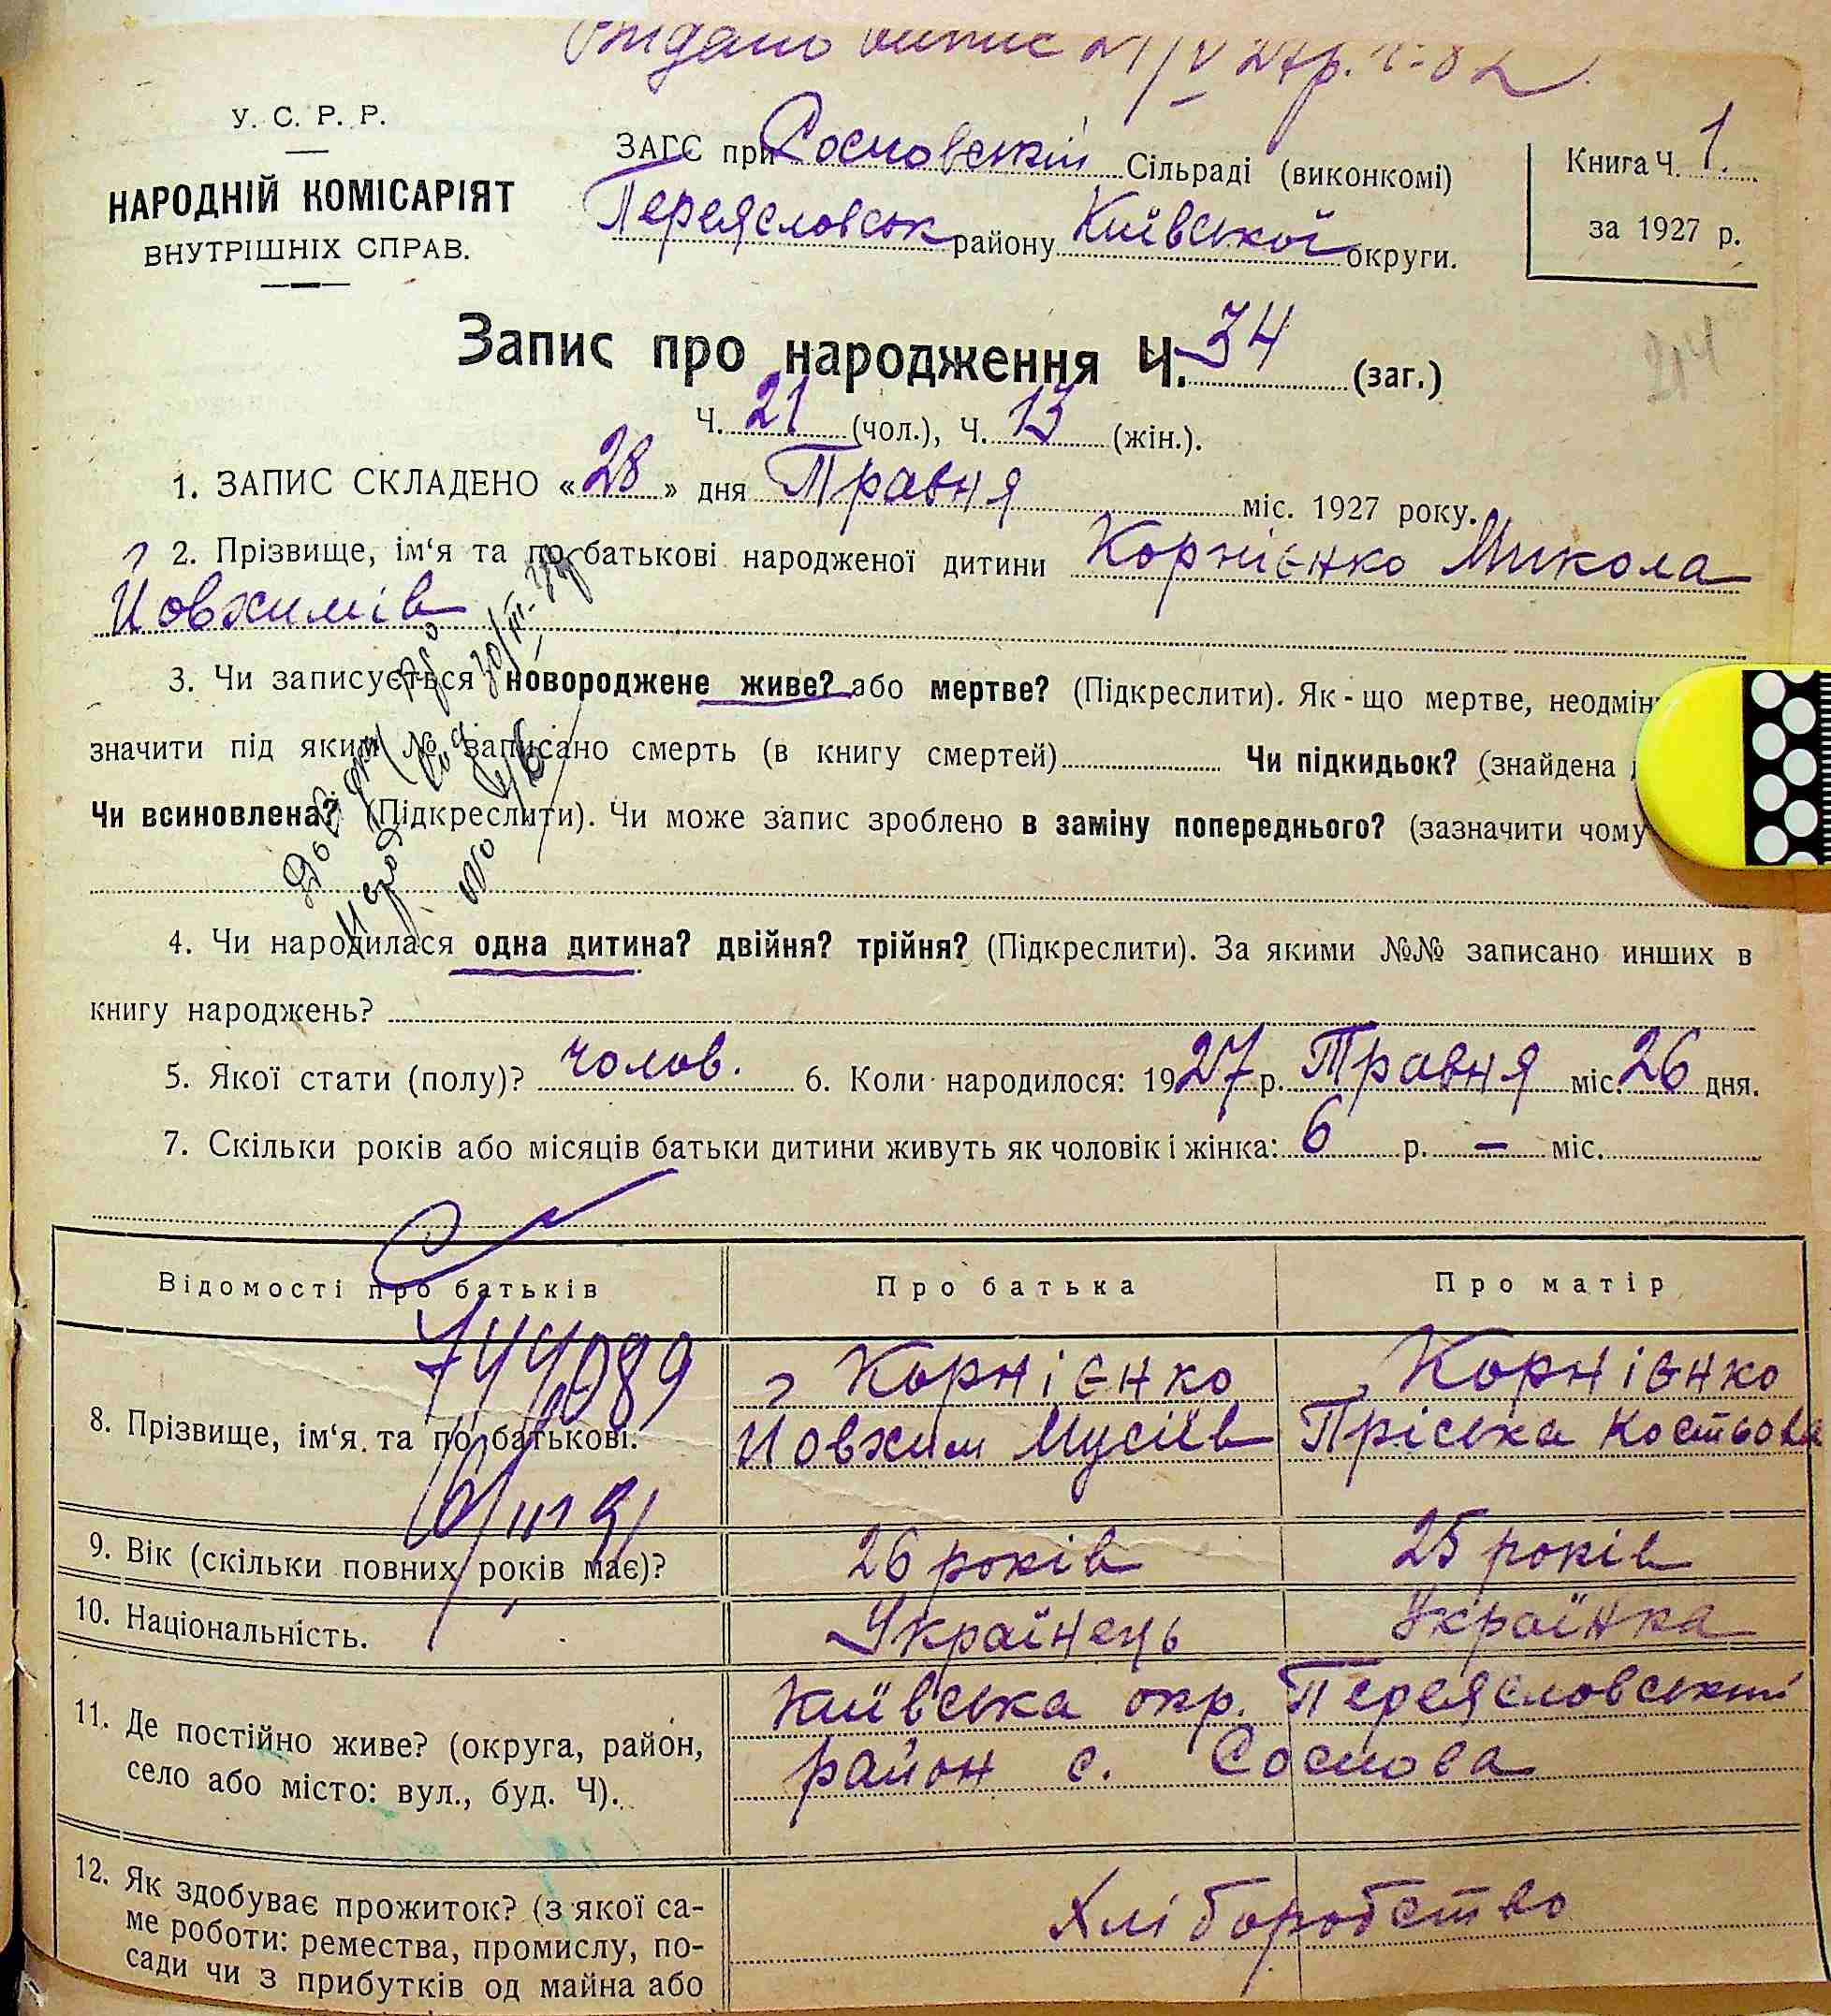 Видано випис 21/V 27р.
У. С. Р. Р.
НАРОДНІЙ КОМІСАРІЯТ
ВНУТРІШНІХ СПРАВ.
ЗАГС при Сосновській Сільраді (виконкомі)
Переясловськ району Київської округи.
Книга Ч. 1.
за 1927 р.
214
Запис про народження Ч. 34 (заг.)
Ч. 21 (чол.), Ч. 13 (жін.).
1. ЗАПИС СКЛАДЕНО «28» дня Травня міс. 1927 року.
2. Прізвище, ім‘я та по батькові народженої дитини Корнієнко Микола
Йовхимів
3. Чи записується новороджене живе? або мертве? (Підкреслити). Як-що мертве, неодмін
значити під яким № записано смерть (в книгу смертей) Чи підкидьок? (знайдена
Чи всиновлена? (Підкреслити). Чи може запис зроблено в заміну попереднього? (зазначити чому
4. Чи народилася одна дитина? двійня? трійня? (Підкреслити). За якими №№ записано инших в
книгу народжень?
5. Якої стати (полу)? чолов. 6. Коли народилося: 1927 р. Травня міс. 26 дня.
7. Скільки років або місяців батьки дитини живуть як чоловік і жінка: 6 р. — міс.
Відомості про батьків Про батька Про матір
744089
8. Прізвище, ім‘я та по батькові. Корнієнко Корнієнко
Йовхим Мусіїв Пріська Костьова
9. Вік (скільки повних років має)? 26 років 25 років
10. Національність. Українець Українка
11. Де постійно живе? (округа, район, Київська окр. Переясловський
село або місто: вул., буд. Ч). район с. Соснова
12. Як здобуває прожиток? (з якої са-
ме роботи: ремества, промислу, по- Хліборобство
сади чи з прибутків од майна або